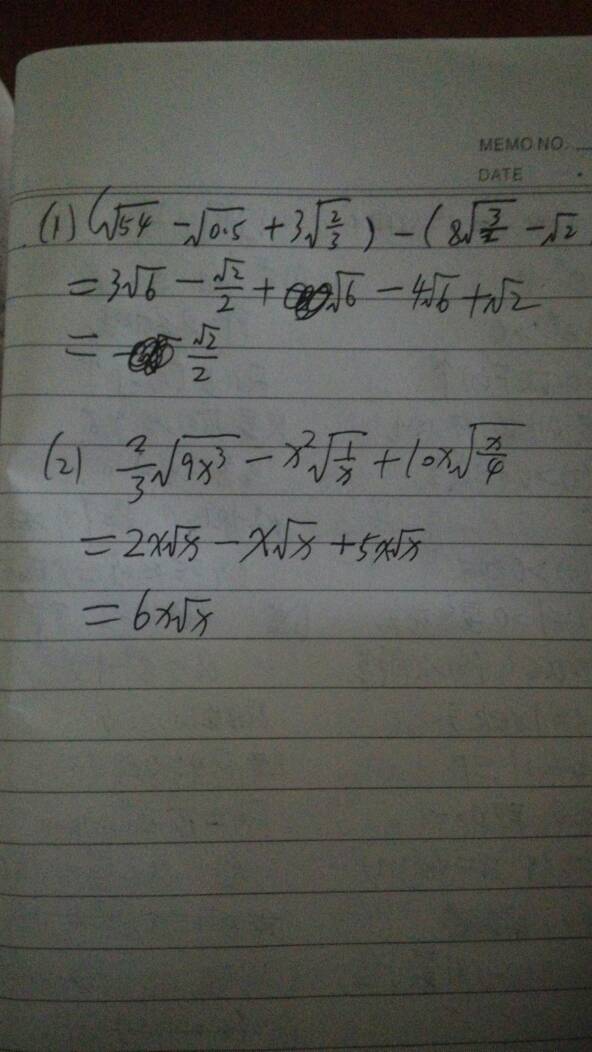 MEMO NO.
DATE
(1) (√54 - √0.5 + 3√(2/3)) - (8√(3/2) - √2
= 3√6 - √2/2 + √6 - 4√6 + √2
= √2/2
(2) 2/3 √(9x³) - x²√(1/x) + 10x√(x/4)
= 2x√x - x√x + 5x√x
= 6x√x